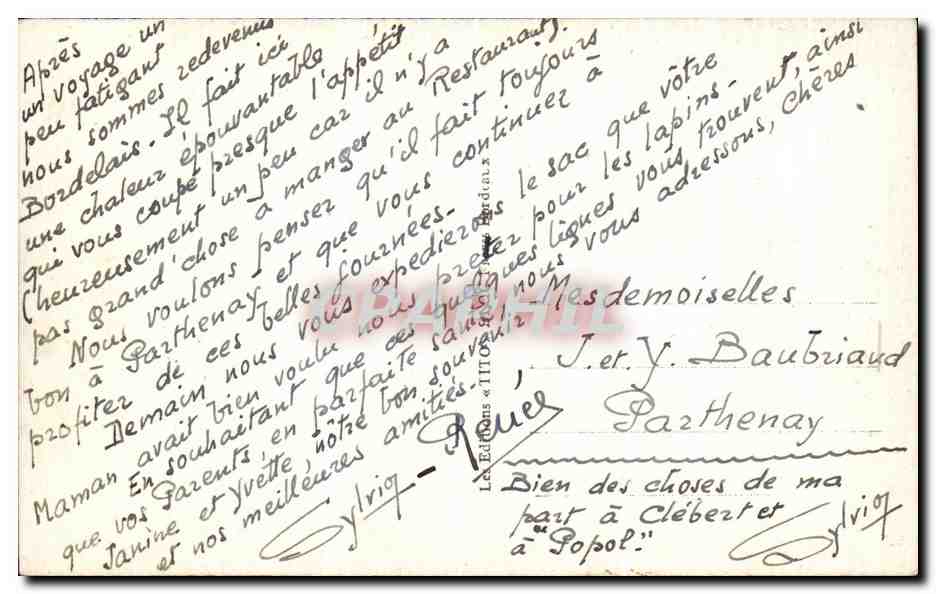 Après
un voyage un
peu fatigant
nous sommes redevenus
Bordelais. Il fait ici
une chaleur épouvantable
qui vous coupe presque l'appétit
(heureusement un peu car il n'y a
pas grand'chose à manger au Restaurant).
Nous voulons penser qu'il fait toujours
bon à Parthenay et que vous continuez à
profiter de ces belles journées.
Demain nous vous expedierons le sac que vôtre
Maman avait bien voulu nous prêter pour les lapins.
En souhaitant que ces quelques lignes vous trouvent, ainsi
que vos Parents, en parfaite santé, nous vous adressons, Chères
Janine et Yvette, nôtre bon souvenir
et nos meilleures amitiés.
Sylvio - René
Les Editions « TITO Bordeaux »
CPAPHIL
Mesdemoiselles
J. et Y. Baubriaud
Parthenay
Bien des choses de ma
part à Clébert et
à "Popol."
Sylvio